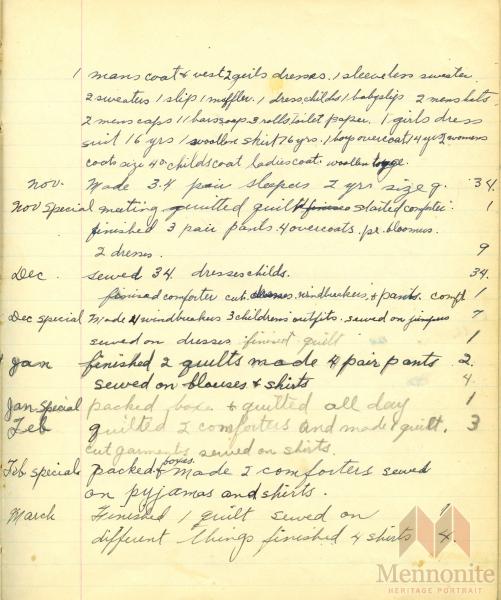 1 mans coat & vest 2 girls dresses. 1 sleeveless sweater
2 sweaters 1 slip 1 muffler. 1 dress childs 1 baby slip 2 mens hats
2 mens caps 11 bars soap 3 rolls toilet paper. 1 girls dress
suit 16 yrs 1 woollen skirt 16 yrs. 1 boys overcoat 14 yrs 2 womens
coats size 40 childs coat ladies coat. woollen
Nov. Made 34 pair sleepers 2 yrs size g. 34.
Nov Special meeting quilted quilt started comforter. 1
finished 3 pair pants. 4 overcoats. pr. bloomers.
2 dresses. 9
Dec. sewed 34 dresses childs. 34.
finished comforter cut dresses. windbreakers, & pants. comft 1
Dec special Made 4 windbreakers 3 childrens outfits. sewed on jumpers 7
sewed on dresses finised quilt 1
Jan finished 2 quilts made 4 pair pants 2.
sewed on blouses & shirts 4.
Jan Special packed boxes & quilted all day 1
Feb quilted 2 comforters and made 1 quilt. 3
cut garments sewed on shirts.
Feb special packed boxes & made 2 comforters sewed
on pyjamas and shirts.
March Finished 1 quilt sewed on 1
different things finished 4 shirts 4.
Mennonite
HERITAGE PORTRAIT